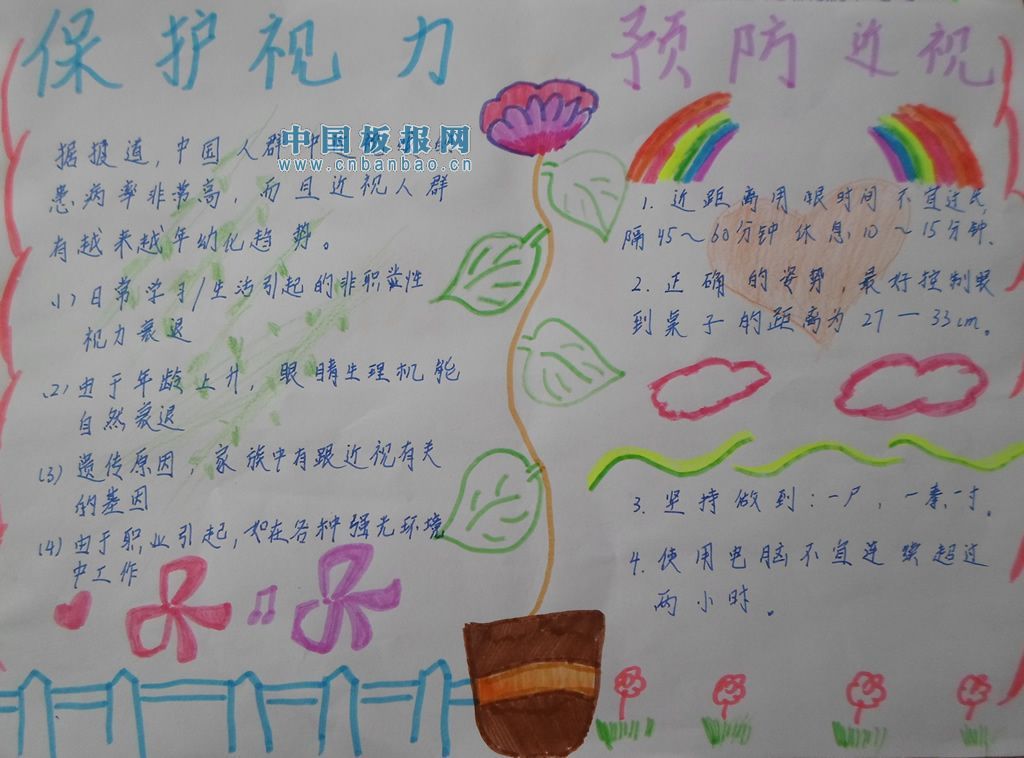 保护视力
预防近视
中国板报网
www.cnbanbao.cn
据报道,中国人群中近
患病率非常高,而且近视人群
有越来越年幼化趋势。
(1)日常学习/生活引起的非职业性
视力衰退
(2)由于年龄上升,眼睛生理机能
自然衰退
(3)遗传原因,家族中有跟近视有关
的基因
(4)由于职业引起,如在各种强光环境
中工作
1.近距离用眼时间不宜过长,
隔45~60分钟休息10~15分钟.
2.正确的姿势,最好控制眼
到桌子的距离为27—33cm。
3.坚持做到:一尸,一寸。
4.使用电脑不宜连续超过
两小时。